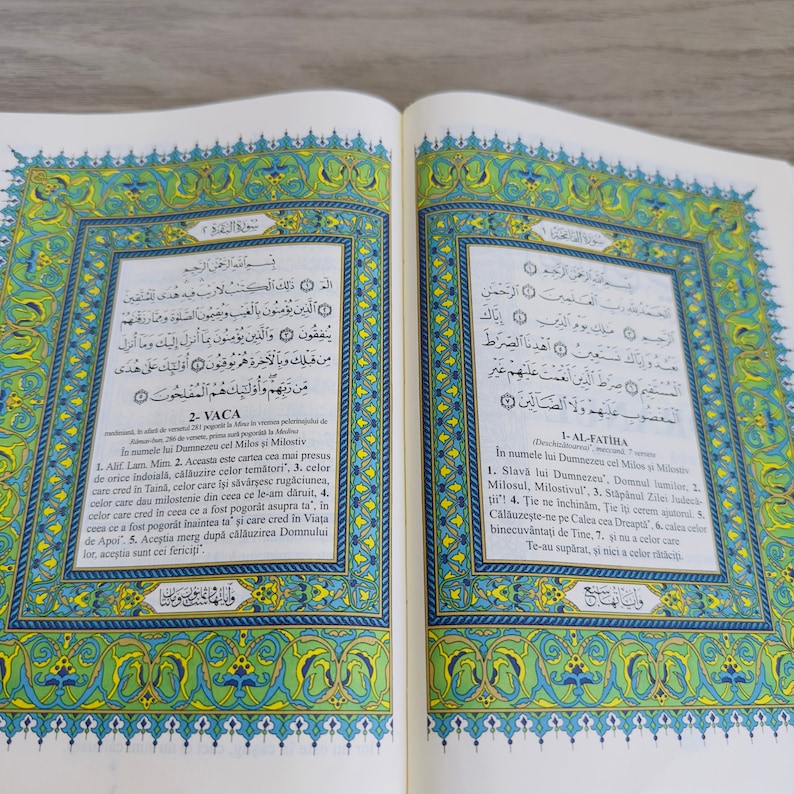 سُورَةُ الْفَاتِحَةِ ١
بِسْمِ اللَّهِ الرَّحْمَٰنِ الرَّحِيمِ ١
الْحَمْدُ لِلَّهِ رَبِّ الْعَٰلَمِينَ ٢ الرَّحْمَٰنِ
الرَّحِيمِ ٣ مَٰلِكِ يَوْمِ الدِّينِ ٤ إِيَّاكَ
نَعْبُدُ وَإِيَّاكَ نَسْتَعِينُ ٥ اهْدِنَا الصِّرَٰطَ
الْمُسْتَقِيمَ ٦ صِرَٰطَ الَّذِينَ أَنْعَمْتَ عَلَيْهِمْ غَيْرِ
الْمَغْضُوبِ عَلَيْهِمْ وَلَا الضَّالِّينَ ٧
1- AL-FATÎHA
(Deschizătoarea)*, meccană, 7 versete
În numele lui Dumnezeu cel Milos și Milostiv
1. Slavă lui Dumnezeu*, Domnul lumilor, 2.
Milosul, Milostivul*, 3. Stăpânul Zilei Judecă-
ții*! 4. Ție ne închinăm, Ție îți cerem ajutorul. 5.
Călăuzește-ne pe Calea cea Dreaptă*, 6. calea celor
binecuvântați de Tine, 7. și nu a celor care
Te-au supărat, și nici a celor rătăciți.
وَآيَاتُهَا سَبْعٌ
سُورَةُ الْبَقَرَةِ ٢
بِسْمِ اللَّهِ الرَّحْمَٰنِ الرَّحِيمِ
الٓمٓ ١ ذَٰلِكَ الْكِتَٰبُ لَا رَيْبَ فِيهِ هُدًى لِلْمُتَّقِينَ
٢ الَّذِينَ يُؤْمِنُونَ بِالْغَيْبِ وَيُقِيمُونَ الصَّلَوٰةَ وَمِمَّا رَزَقْنَٰهُمْ
يُنْفِقُونَ ٣ وَالَّذِينَ يُؤْمِنُونَ بِمَا أُنْزِلَ إِلَيْكَ وَمَا أُنْزِلَ
مِنْ قَبْلِكَ وَبِالْآخِرَةِ هُمْ يُوقِنُونَ ٤ أُولَٰئِكَ عَلَىٰ هُدًى
مِنْ رَبِّهِمْ وَأُولَٰئِكَ هُمُ الْمُفْلِحُونَ ٥
2- VACA
mediniană, în afară de versetul 281 pogorât la Mina în vremea pelerinajului de
Rămas-bun, 286 de versete, prima sură pogorâtă la Medina
În numele lui Dumnezeu cel Milos și Milostiv
1. Alif. Lam. Mim. 2. Aceasta este cartea cea mai presus
de orice îndoială, călăuzire celor temători*, 3. celor
care cred în Taină, celor care își săvârșesc rugăciunea,
celor care dau milostenie din ceea ce le-am dăruit, 4.
celor care cred în ceea ce a fost pogorât asupra ta*, în
ceea ce a fost pogorât înaintea ta* și care cred în Viața
de Apoi*. 5. Aceștia merg după călăuzirea Domnului
lor, aceștia sunt cei fericiți*.